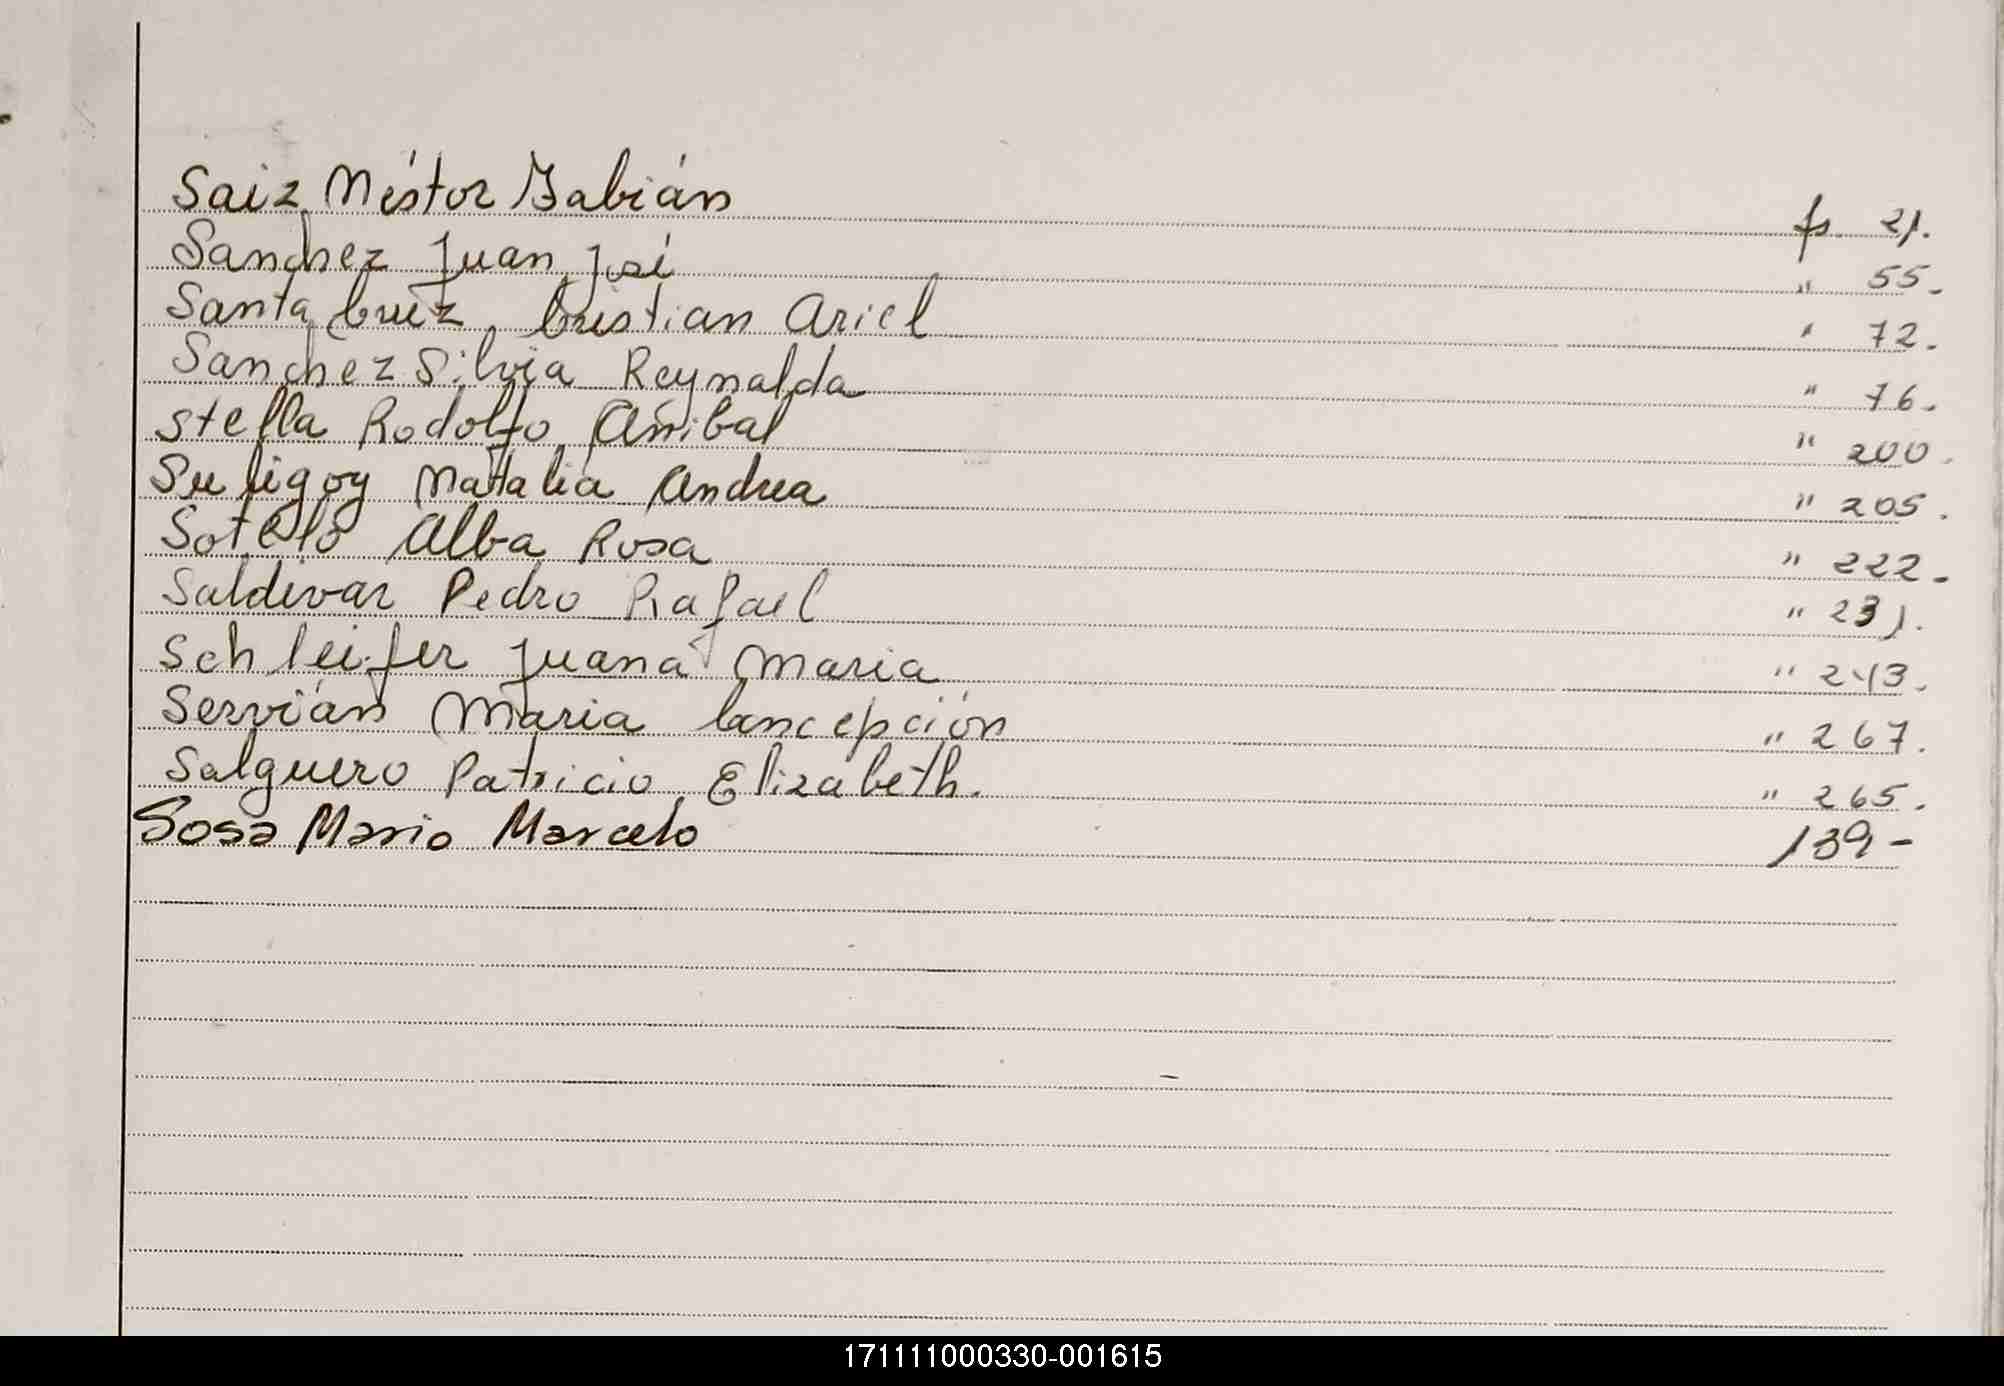 Saiz Néstor Fabián fs. 21.
Sanchez Juan José " 55.
Santa Cruz, Cristian Ariel " 72.
Sanchez Silvia Reynalda " 76.
Stella Rodolfo Anibal " 200.
Suligoy Natalia Andrea " 205.
Sotelo Alba Rosa " 222.
Saldivar Pedro Rafael " 231.
Schleifer Juana Maria " 243.
Servián Maria Concepción " 267.
Salguero Patricio Elizabeth. " 265.
Sosa Mario Marcelo 139-
171111000330-001615